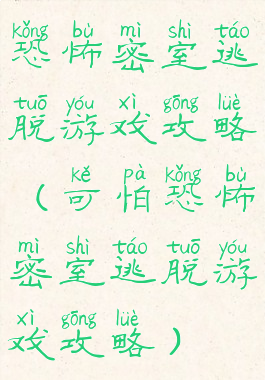 kǒng bù mì shì táo
恐怖密室逃
tuō yóu xì gōng lüè
脱游戏攻略
kě pà kǒng bù
（可怕恐怖
mì shì táo tuō yóu
密室逃脱游
xì gōng lüè
戏攻略）